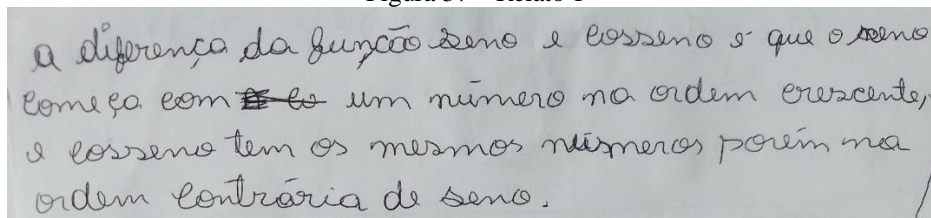 a diferença da função seno e cosseno é que o seno
começa com um número na ordem crescente,
e cosseno tem os mesmos números porém na
ordem contrária de seno.